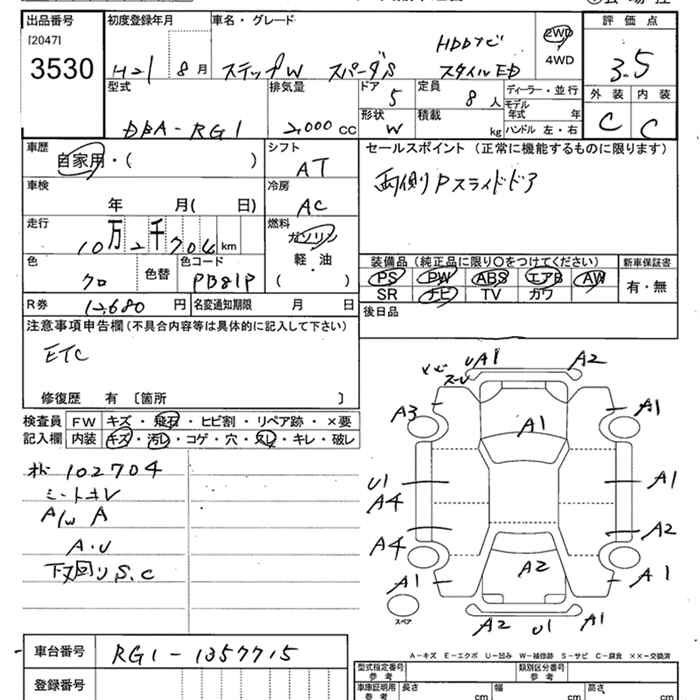 出品番号 初度登録年月 車名・グレード 評価点
[2047]
3530
H21 8月 ステップW スパーダS HDDナビ スタイルED
2WD
4WD
3.5
型式 排気量 ドア 定員 ディーラー・並行
DBA-RG1 2,000 cc 5 8人
モデル年式 年
形状 積載 ハンドル 左・右
W kg
外装 内装
C C
車歴 シフト セールスポイント(正常に機能するものに限ります)
自家用・( ) AT
両側Pスライドドア
車検 冷房
年 月( 日) AC
走行 燃料
10万2千704km ガソリン
軽・油
( )
色 色替 色コード
クロ PB81P
装備品(純正品に限り〇をつけてください) 新車保証書
PS PW ABS エアB AW 有・無
SR ナビ TV カワ
R券 12,680円 名変通知期限 月 日
後日品
注意事項申告欄(不具合内容等は具体的に記入して下さい)
ETC
修復歴 有 〔箇所 〕
検査員 FW キズ・飛石・ヒビ割・リペア跡・×要
記入欄 内装 キズ・汚レ・コゲ・穴・スレ・キレ・破レ
102704
A/W A
A・U
下廻りS.C
UA1 A2
A3 A1 A1
U1 A1
A4
A4 A2
A1 A2 A1
スペア
A2 U1 A1
A-キズ E-エクボ U-凹み W-補修跡 S-サビ C-腐食 ××-交換済
車台番号 RG1-1357715
登録番号
型式指定番号 参考 類別区分番号 参考
車庫証明用 参考 長さ cm 幅 cm 高さ cm